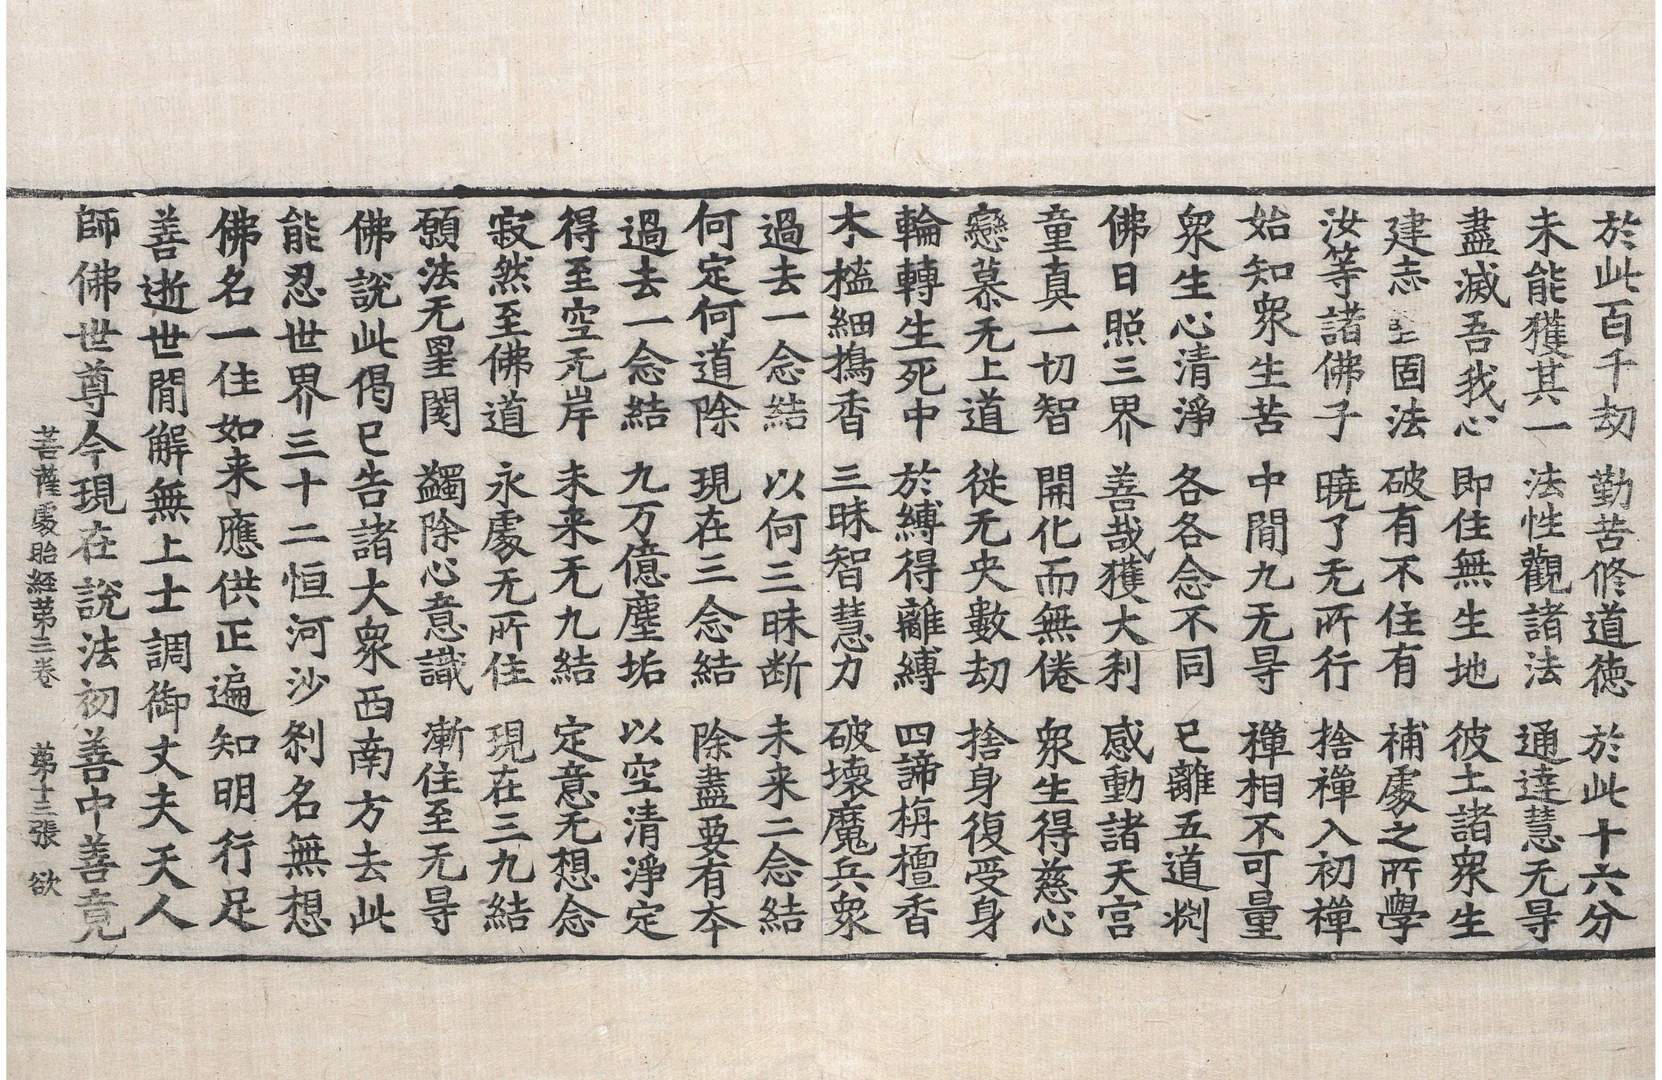 於此百千劫 勤苦修道德 於此十六分
未能獲其一 法性觀諸法 通達慧无㝵
盡滅吾我心 即住無生地 彼土諸衆生
建志堅固法 破有不住有 補處之所學
汝等諸佛子 曉了无所行 捨禪入初禪
始知衆生苦 中間九无㝵 禪相不可量
衆生心清淨 各各念不同 已離五道渕
佛日照三界 善哉獲大利 感動諸天宮
童真一切智 開化而無倦 衆生得慈心
戀慕无上道 從无央數劫 捨身復受身
輪轉生死中 於縛得離縛 四諦栴檀香
木榓細擣香 三昧智慧力 破壞魔兵衆
過去一念結 以何三昧断 未来二念結
何定何道除 現在三念結 除盡要有本
過去一念結 九万億塵垢 以空清淨定
得至空无岸 未来无九結 定意无想念
寂然至佛道 永處无所住 現在三九結
願法无罣閡 蠲除心意識 漸住至无㝵
佛說此偈已告諸大衆西南方去此
能忍世界三十二恒河沙刹名無想
佛名一住如来應供正遍知明行足
善逝世間解無上士調御丈夫天人
師佛世尊今現在說法初善中善竟
菩薩處胎經第三卷 第十三張 欲